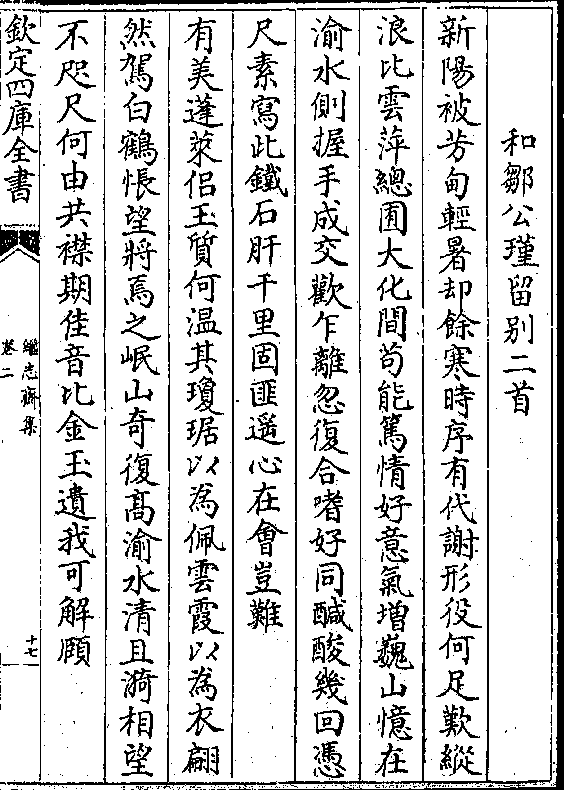 和鄒公瑾留别二首
新陽被芳甸輕暑却餘寒時序有代謝形役何足歎縱
浪比雲萍總囿大化間苟能篤情好意氣增巍山憶在
渝水側握手成交歡乍離忽復合嗜好同醎酸幾回憑
尺素寫此鐵石肝千里固匪遥心在㑹豈難
有美蓬萊侣玉質何温其瓊琚以為佩雲霞以為衣翩
然駕白鶴悵望將焉之岷山奇復髙渝水清且漪相望
不咫尺何由共襟期佳音比金玉遺我可解頤
欽定四庫全書
繼志齋集
卷二
十七